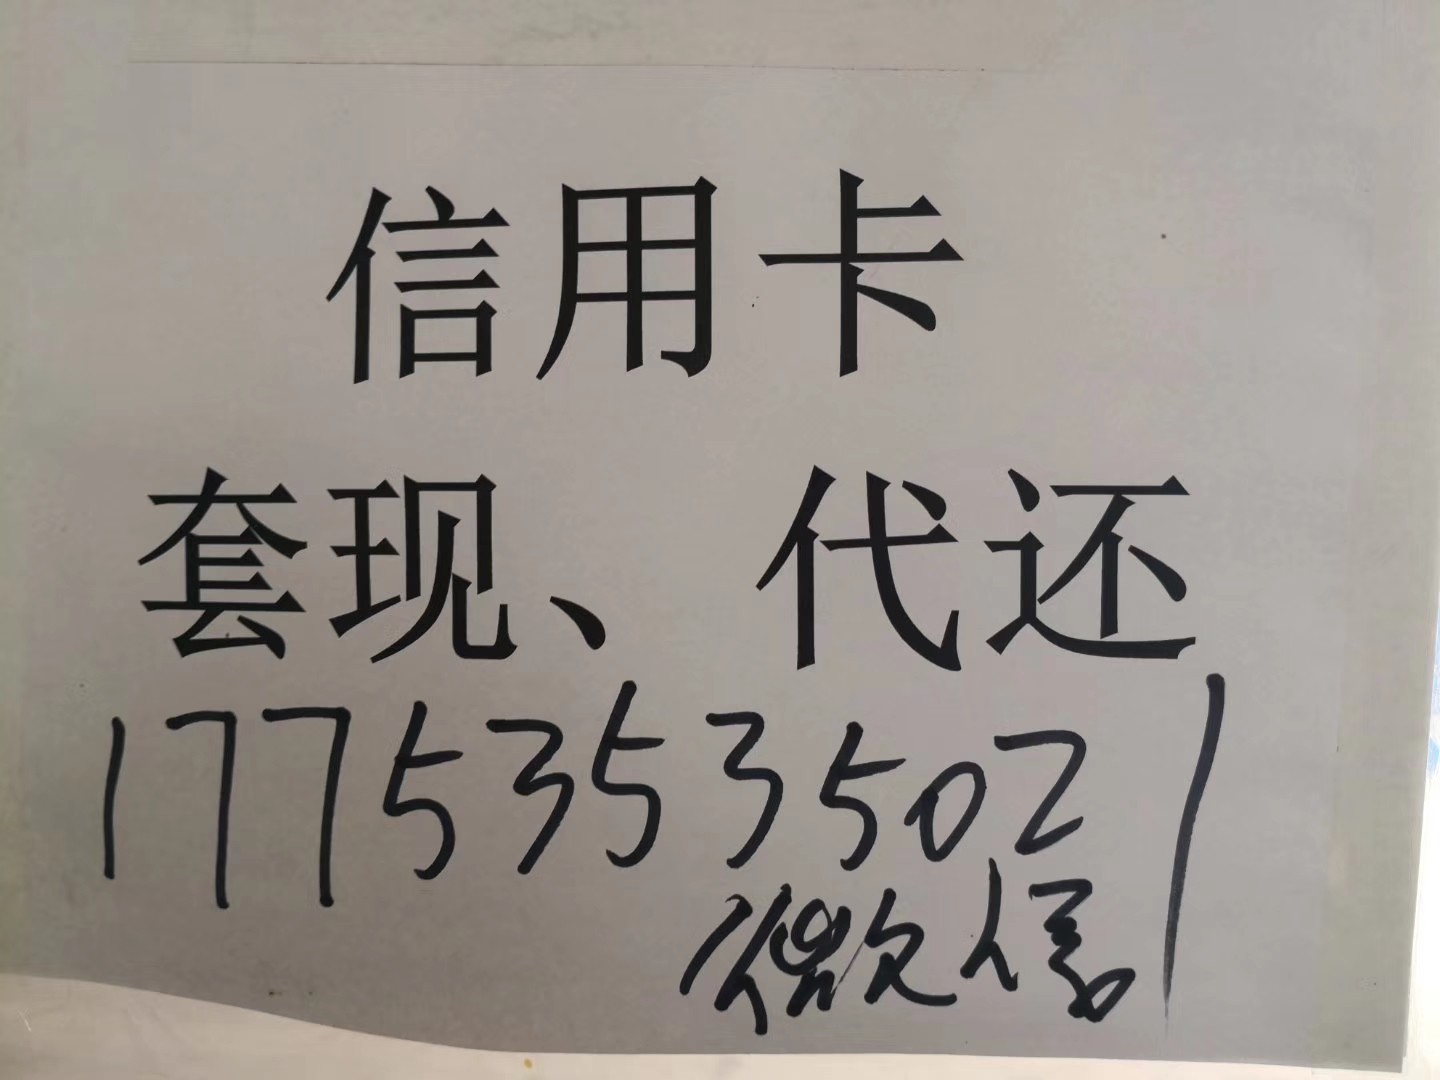 信用卡
套现、代还
17753535021
微信